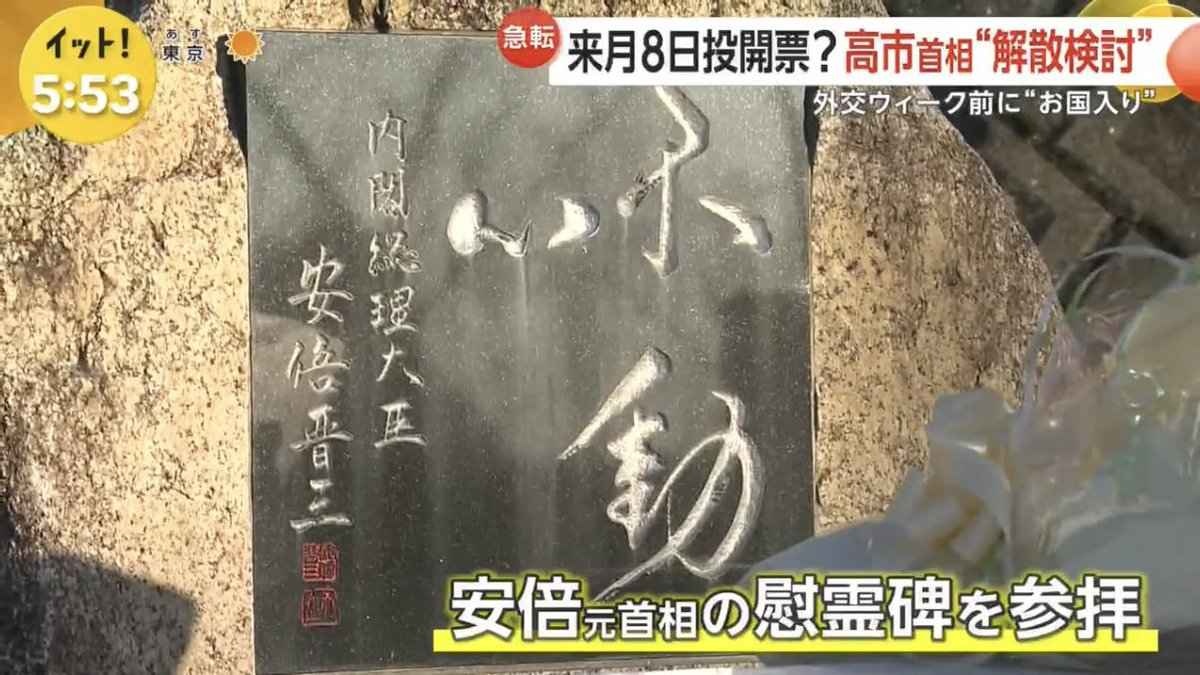 イット!
5:53
あす
東京
急転
来月8日投開票?高市首相“解散検討”
外交ウィーク前に“お国入り”
不動
心
内閣総理大臣
安倍晋三
安倍元首相の慰霊碑を参拝